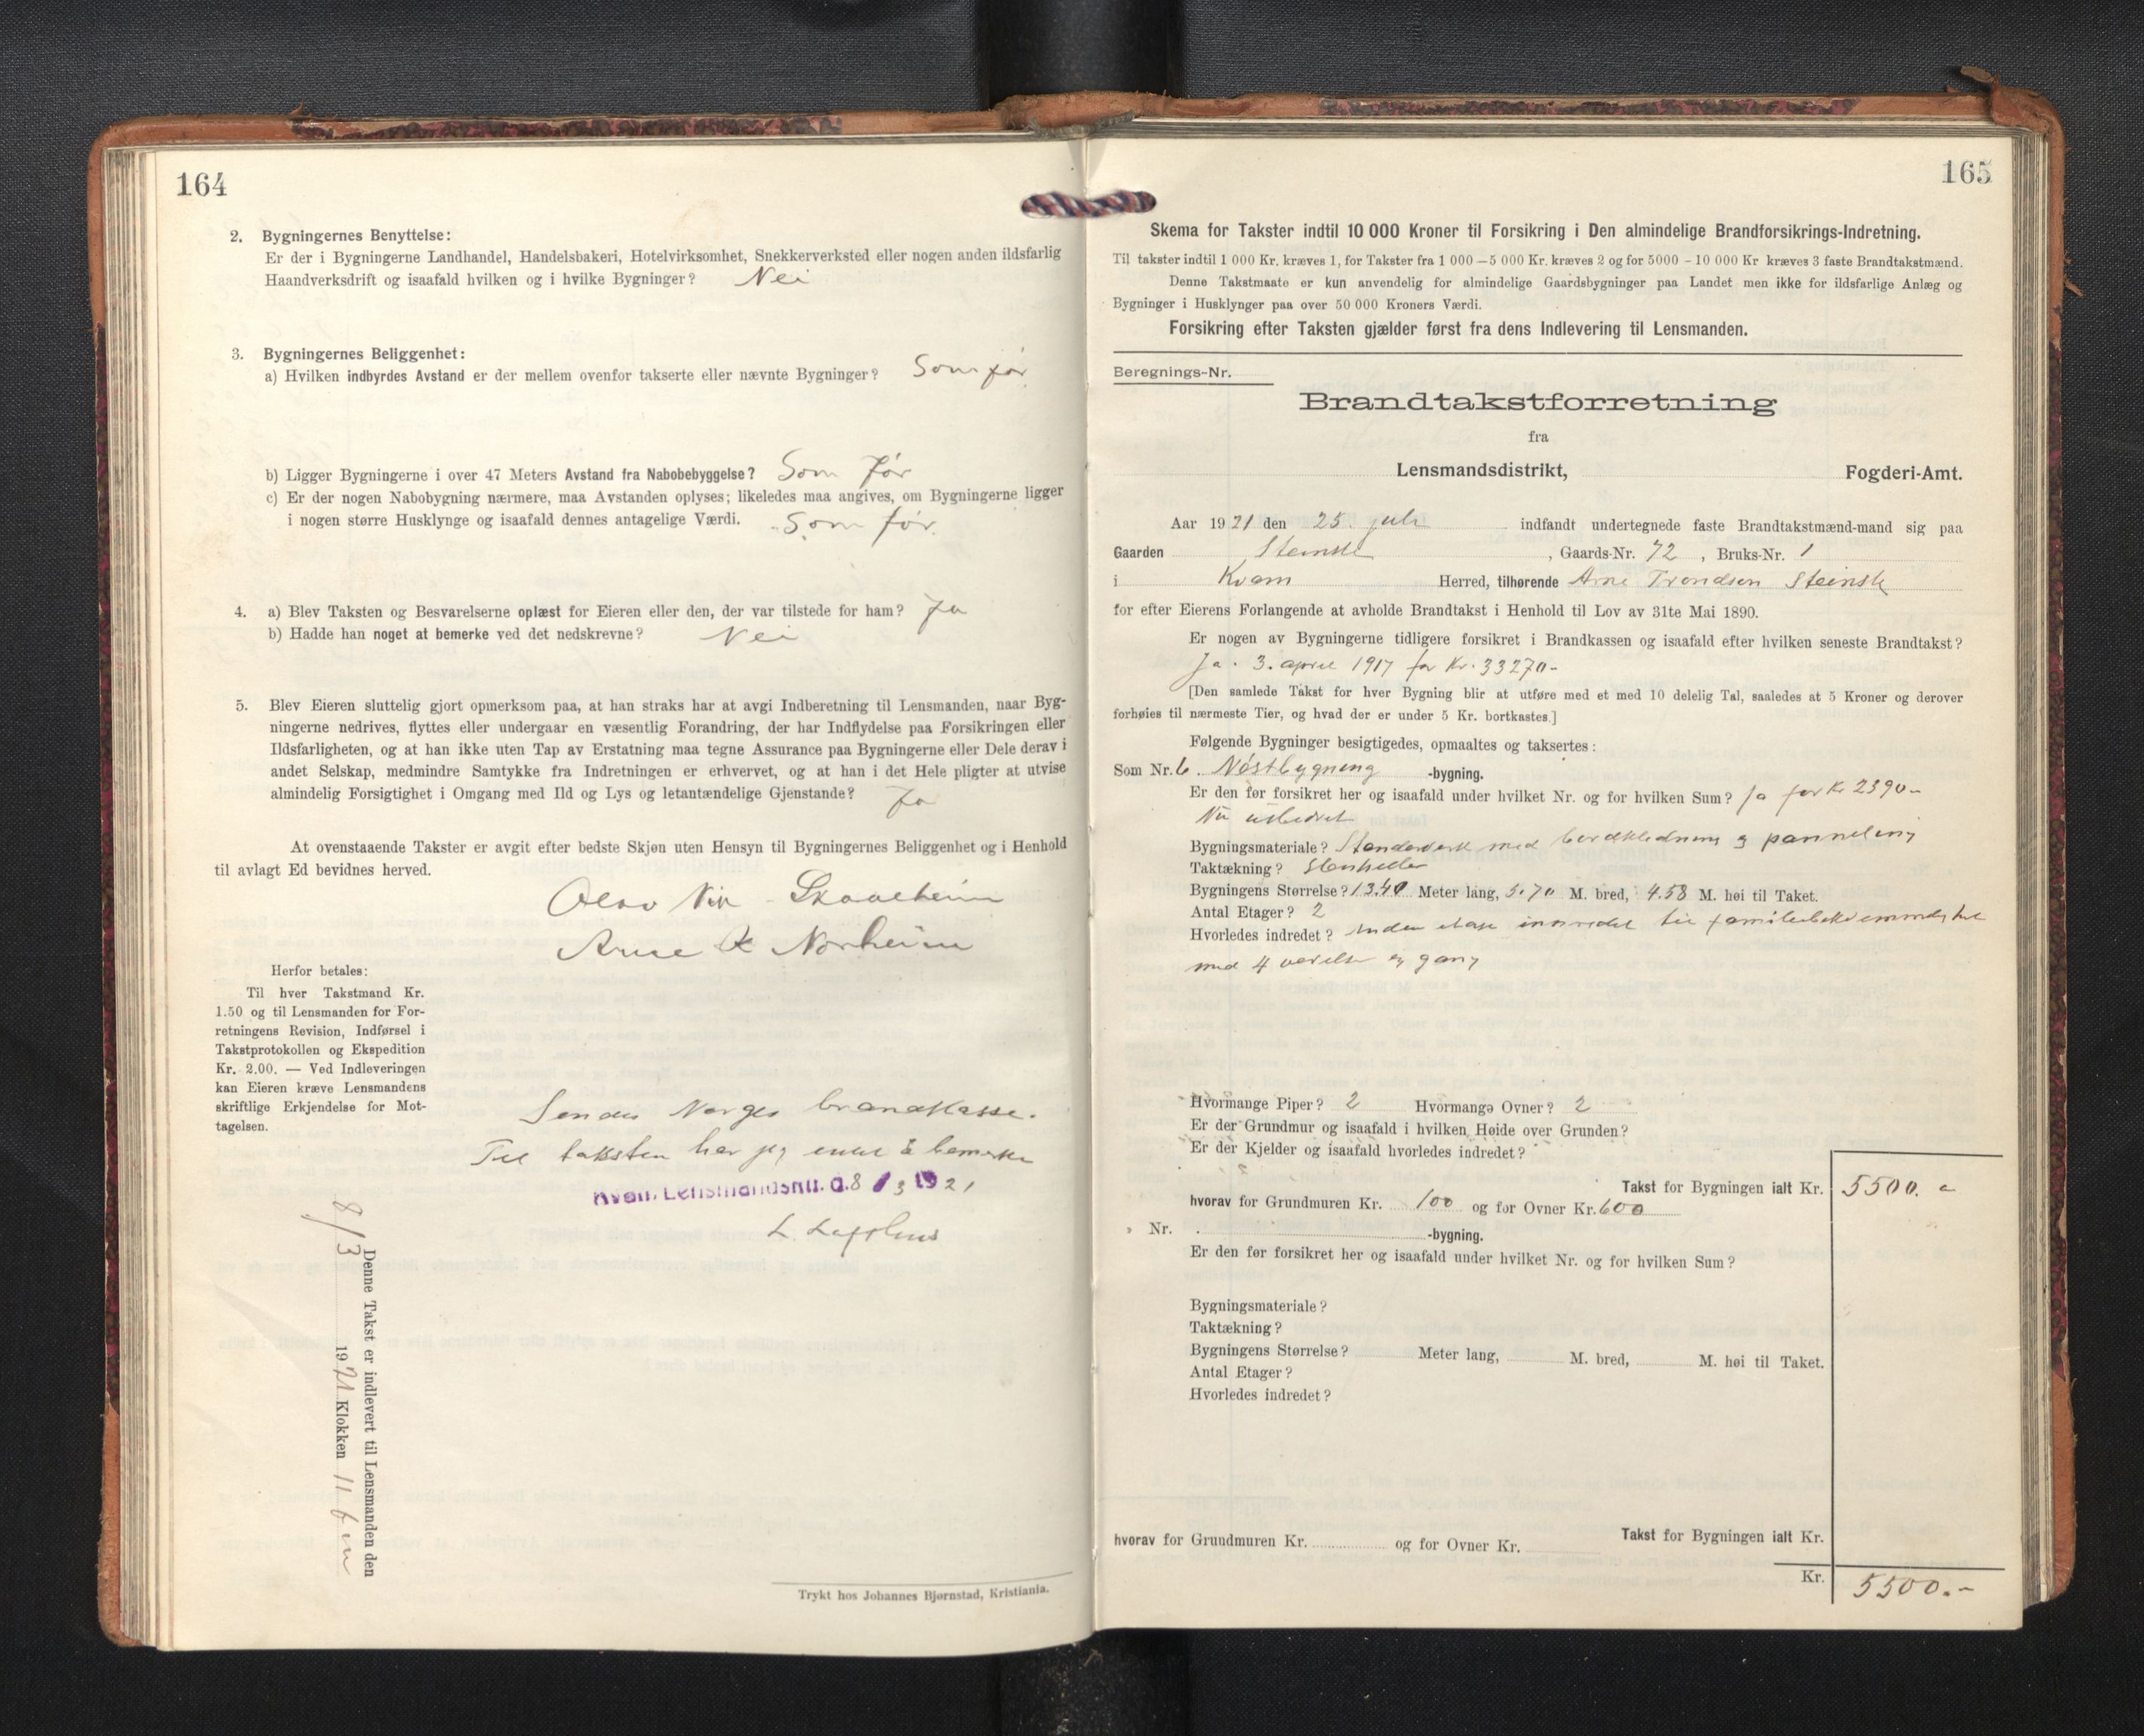 164
2. Bygningernes Benyttelse:
Er der i Bygningerne Landhandel, Handelsbakeri, Hotelvirksomhet, Snekkerverksted eller nogen anden ildsfarlig
Haandverksdrift og isaafald hvilken og i hvilke Bygninger? Nei
3. Bygningernes Beliggenhet:
a) Hvilken indbyrdes Avstand er der mellem ovenfor takserte eller nævnte Bygninger? Som før
b) Ligger Bygningerne i over 47 Meters Avstand fra Nabobebyggelse? Som før
c) Er der nogen Nabobygning nærmere, maa Avstanden oplyses; likeledes maa angives, om Bygningerne ligger
i nogen større Husklynge og isaafald dennes antagelige Værdi. Som før.
4. a) Blev Taksten og Besvarelserne oplæst for Eieren eller den, der var tilstede for ham? Ja
b) Hadde han noget at bemerke ved det nedskrevne? Nei
5. Blev Eieren sluttelig gjort opmerksom paa, at han straks har at avgi Indberetning til Lensmanden, naar Byg-
ningerne nedrives, flyttes eller undergaar en væsentlig Forandring, der har Indflydelse paa Forsikringen eller
Ildsfarligheten, og at han ikke uten Tap av Erstatning maa tegne Assurance paa Bygningerne eller Dele derav i
andet Selskap, medmindre Samtykke fra Indretningen er erhvervet, og at han i det Hele pligter at utvise
almindelig Forsigtighet i Omgang med Ild og Lys og letantændelige Gjenstande? Ja
At ovenstaaende Takster er avgit efter bedste Skjøn uten Hensyn til Bygningernes Beliggenhet og i Henhold
til avlagt Ed bevidnes herved.
Olav Vik Skaalheim
Arne Norheim
Herfor betales:
Til hver Takstmand Kr.
1.50 og til Lensmanden for For-
retningens Revision, Indførsel i
Takstprotokollen og Ekspedition
Kr. 2.00. — Ved Indleveringen
kan Eieren kræve Lensmandens
skriftlige Erkjendelse for Mot-
tagelsen.
Sendes Norges brandkasse.
Til taksten har jeg intet å bemerke
Kvam Lensmandsktr. d. 8/3 1921
Denne Takst er indlevert til Lensmanden den
8/3 1921 Klokken 11 f m
Trykt hos Johannes Bjørnstad, Kristiania.
165
Skema for Takster indtil 10 000 Kroner til Forsikring i Den almindelige Brandforsikrings-Indretning.
Til takster indtil 1 000 Kr. kræves 1, for Takster fra 1 000 —5 000 Kr. kræves 2 og for 5000 - 10 000 Kr kræves 3 faste Brandtakstmænd.
Denne Takstmaate er kun anvendelig for almindelige Gaardsbygninger paa Landet men ikke for ildsfarlige Anlæg og
Bygninger i Husklynger paa over 50 000 Kroners Værdi.
Forsikring efter Taksten gjælder først fra dens Indlevering til Lensmanden.
Beregnings-Nr.
Brandtakstforretning
fra
Lensmandsdistrikt, Fogderi-Amt.
Aar 1921 den 25. juli indfandt undertegnede faste Brandtakstmænd-mand sig paa
Gaarden Steinsk , Gaards-Nr. 72 , Bruks-Nr. 1
i Kvam Herred, tilhørende Arne Trondsen Steinsk
for efter Eierens Forlangende at avholde Brandtakst i Henhold til Lov av 31te Mai 1890.
Er nogen av Bygningerne tidligere forsikret i Brandkassen og isaafald efter hvilken seneste Brandtakst?
Ja. 3. april 1917 for Kr. 33270-
[Den samlede Takst for hver Bygning blir at utføre med et med 10 delelig Tal, saaledes at 5 Kroner og derover
forhøies til nærmeste Tier, og hvad der er under 5 Kr. bortkastes.]
Følgende Bygninger besigtigedes, opmaaltes og taksertes:
Som Nr. 6. Nøstbygning -bygning.
Er den før forsikret her og isaafald under hvilket Nr. og for hvilken Sum? Ja for Kr 2390-
Nu utbedret
Bygningsmateriale? Standerverk med bordklædning og panneling
Taktækning? Stenheller
Bygningens Størrelse? 13.40 Meter lang, 5.70 M. bred, 4.58 M. høi til Taket.
Antal Etager? 2
Hvorledes indredet? Anden etage innredet til familiebekvemmelighet
med 4 værelser og gang
Hvormange Piper? 2 Hvormange Ovner? 2
Er der Grundmur og isaafald i hvilken Høide over Grunden?
Er der Kjelder og isaafald hvorledes indredet?
Takst for Bygningen ialt Kr. 5500.-
hvorav for Grundmuren Kr. 100 og for Ovner Kr. 600
Nr. -bygning.
Er den før forsikret her og isaafald under hvilket Nr. og for hvilken Sum?
Bygningsmateriale?
Taktækning?
Bygningens Størrelse? Meter lang, M. bred, M. høi til Taket.
Antal Etager?
Hvorledes indredet?
Takst for Bygningen ialt Kr.
hvorav for Grundmuren Kr. og for Ovner Kr.
Kr. 5500.-